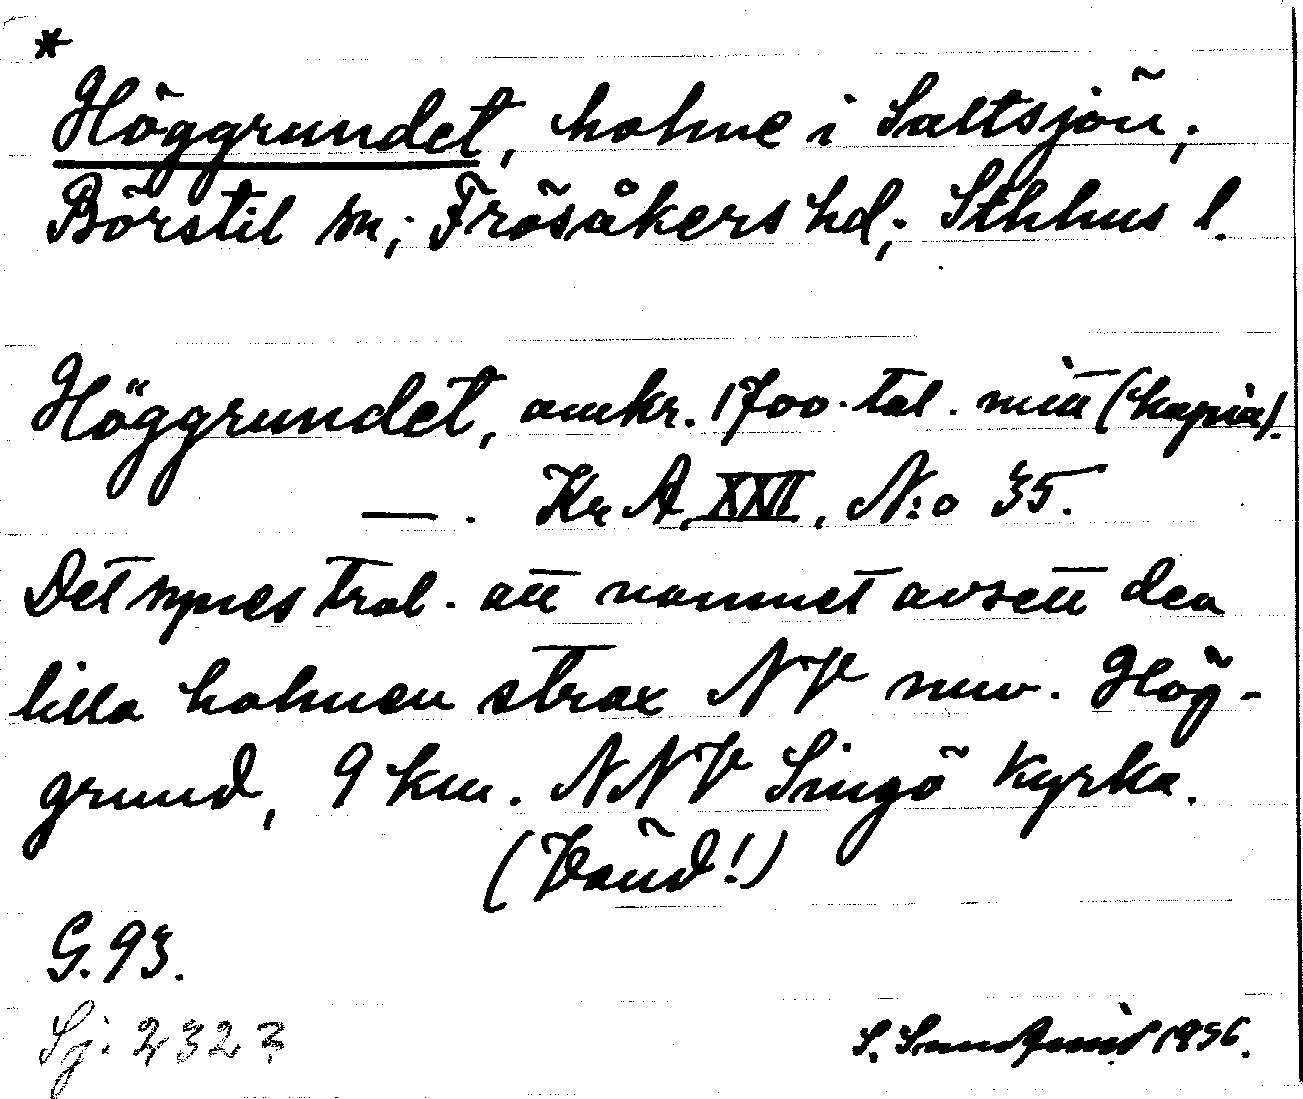 *
Höggrundet, holme i Saltsjön;
Börstil sn; Frösåkers hd; Sthlms l.
Höggrundet, omkr. 1700-tal. mitt (kopia).
— . Kr A, XXII, N:o 35.
Det synes trol. att namnet avsett den
lilla holmen strax NV nuv. Hög-
grund, 9 km. NNV Singö kyrka.
(Vänd!)
G. 93.
Sj. 232?
S. Sandqvist 1936.